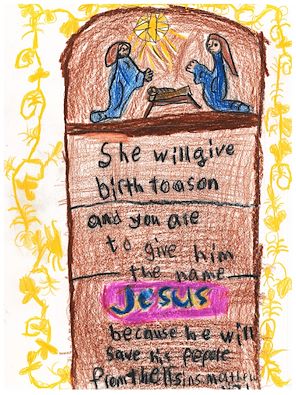 She will give
birth to a son
and you are
to give him
the name
Jesus
because he will
save his people
from theilsins matthew